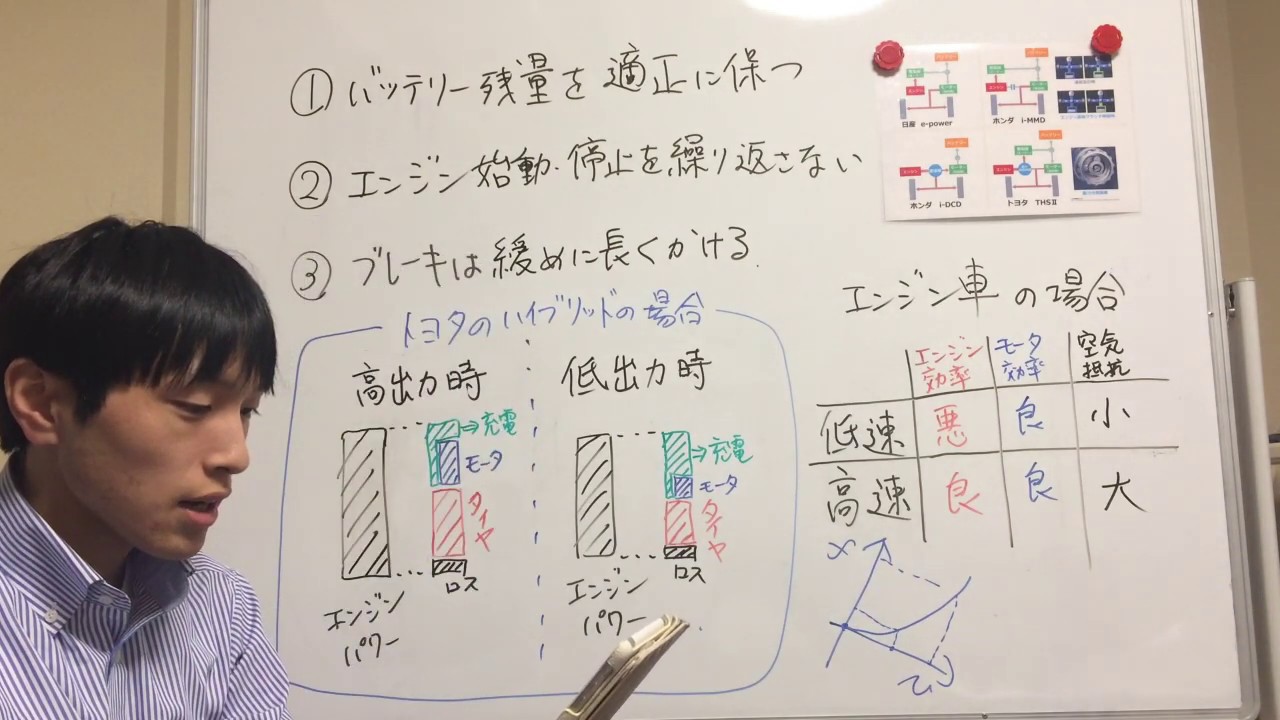 ① バッテリー残量を適正に保つ
② エンジン始動・停止を繰り返さない
③ ブレーキは緩めに長くかける.
トヨタのハイブリッドの場合
高出力時
⇒充電
モータ
タイヤ
ロス
エンジン
パワー
低出力時
⇒充電
モータ
タイヤ
ロス
エンジン
パワー
日産 e-power
ホンダ i-MMD
ホンダ i-DCD
トヨタ THSⅡ
エンジン車の場合
エンジン効率 モータ効率 空気抵抗
低速 悪 良 小
高速 良 良 大